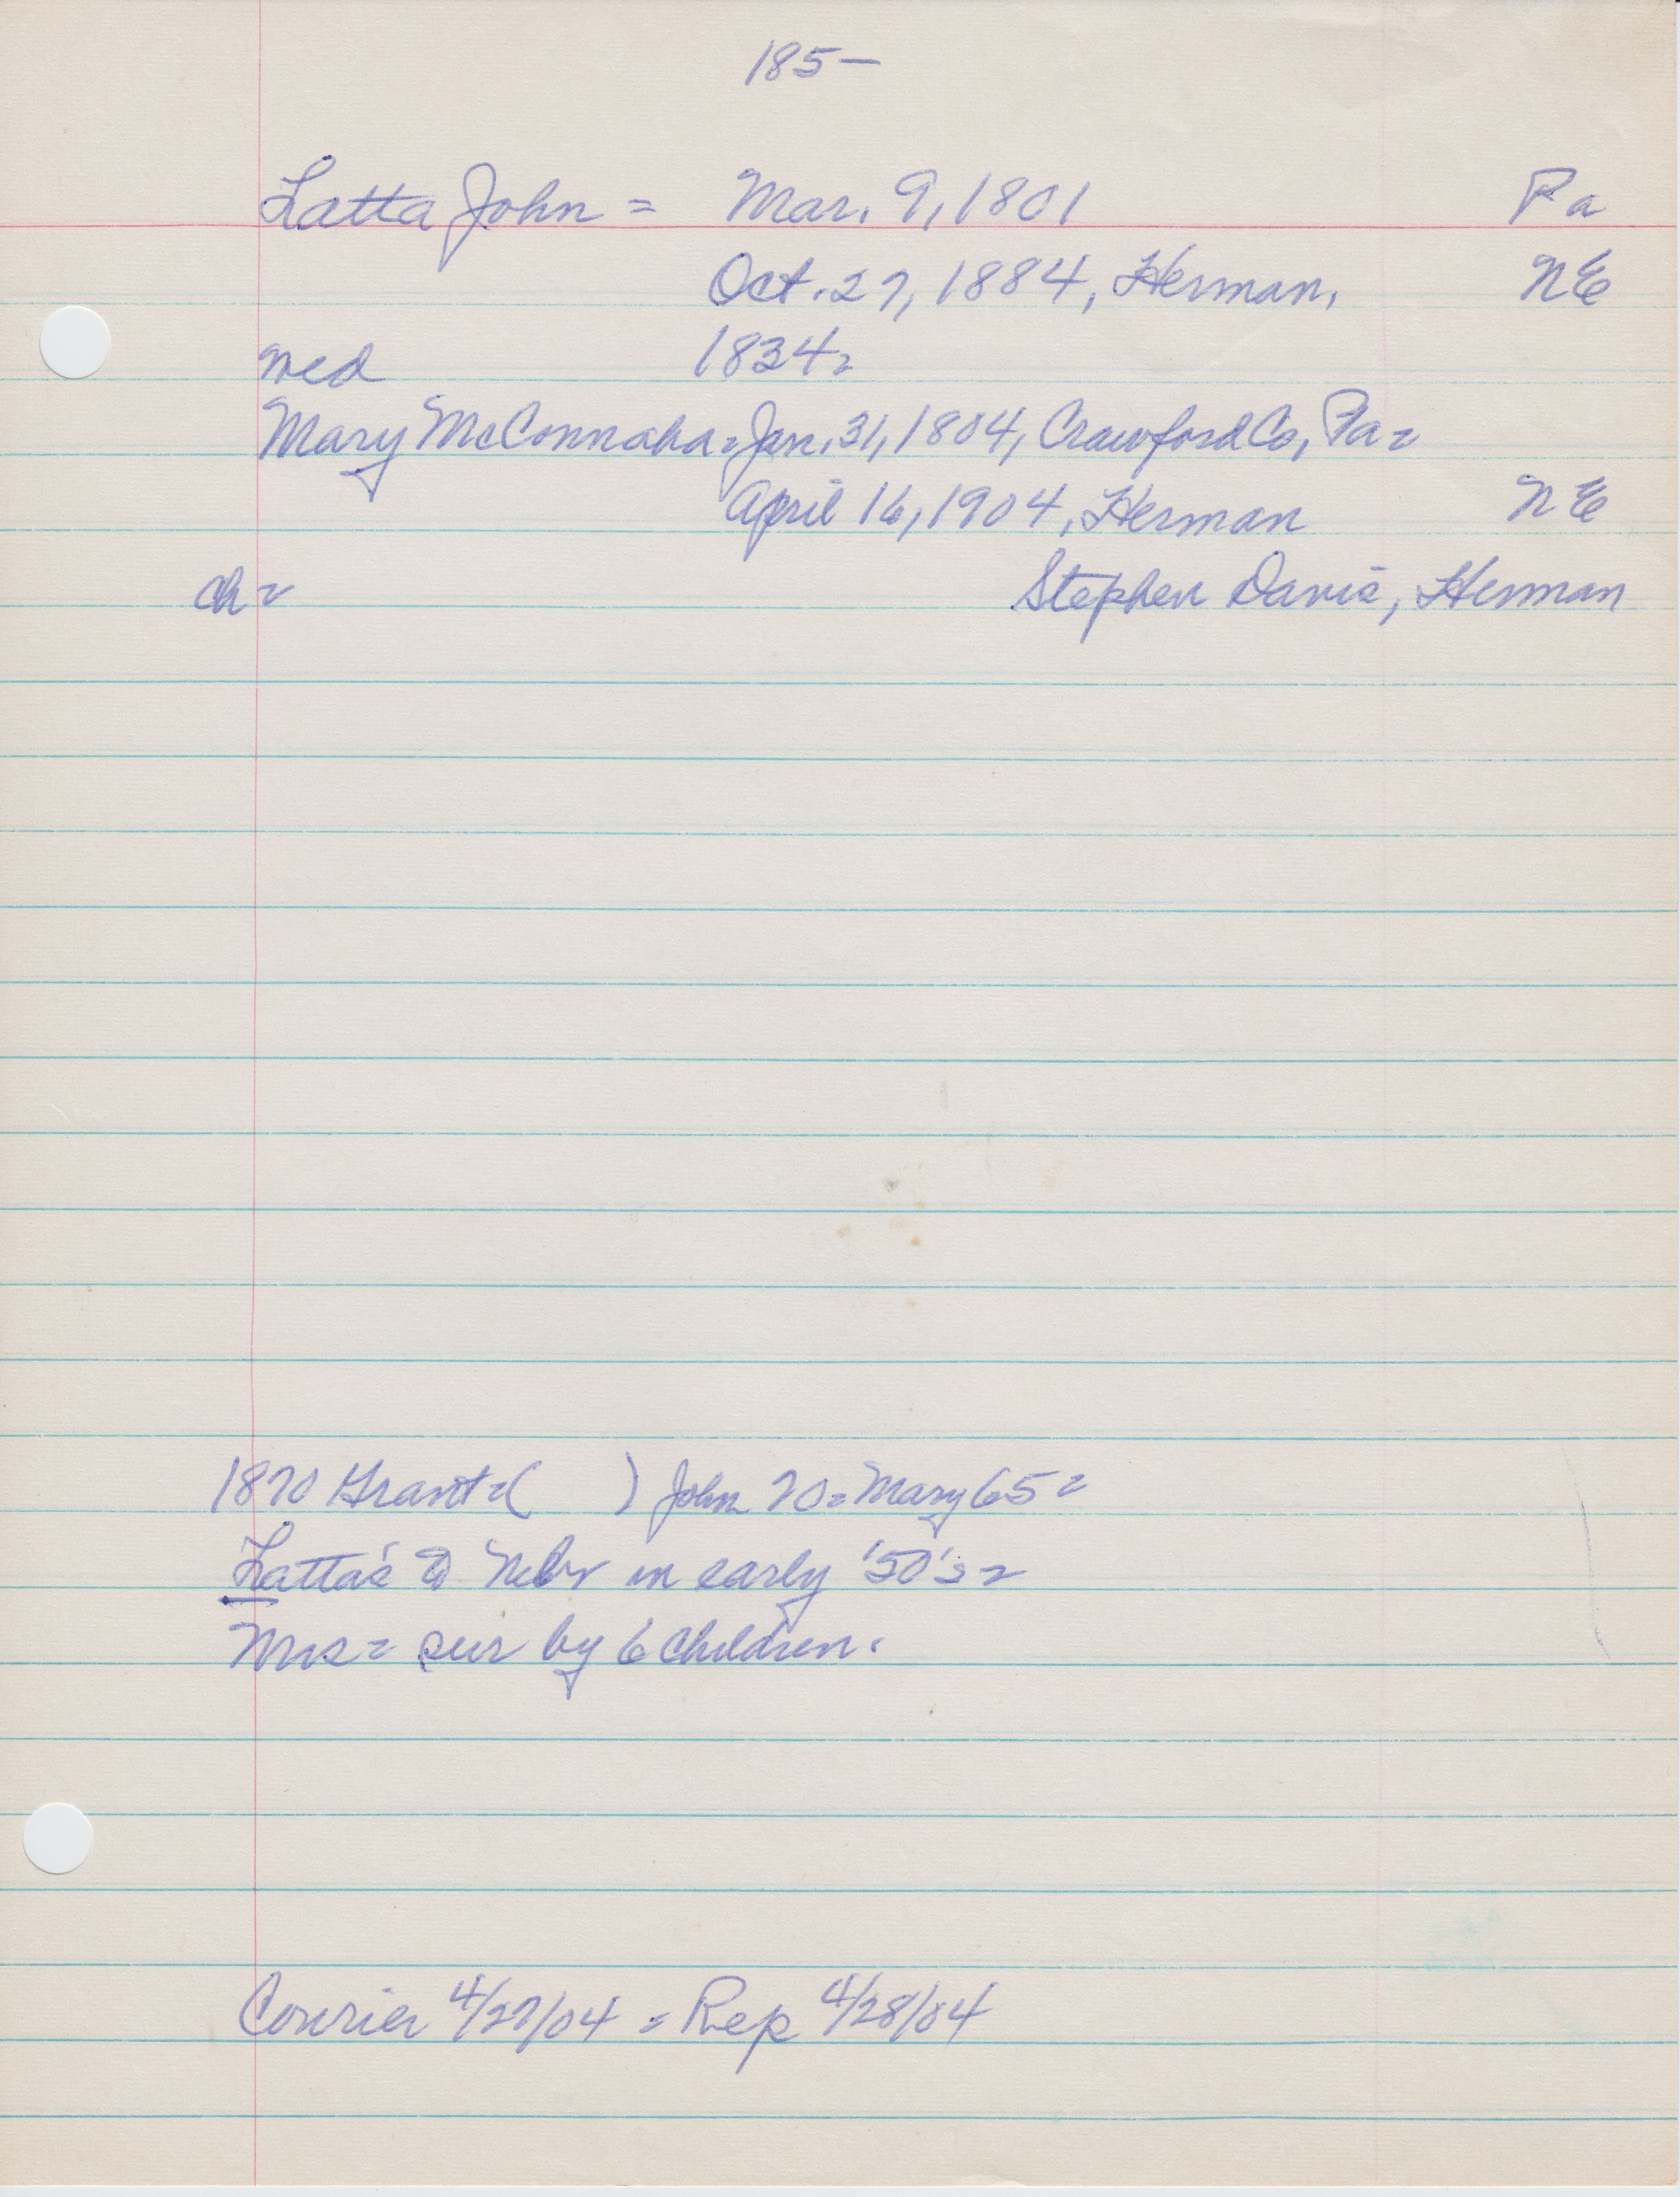 185—
Latta John = Mar. 9, 1801 Pa
Oct. 27, 1884, Herman, NE
wed 1834=
Mary McConnaha = Jan. 31, 1804, Crawford Co, Pa =
April 16, 1904, Herman NE
ch = Stephen Davis, Herman
1870 Grant = ( ) John 70 = Mary 65 =
Latta's to Nebr in early '50's =
Mrs = sur by 6 children.
Courier 4/27/04 = Rep 4/28/04